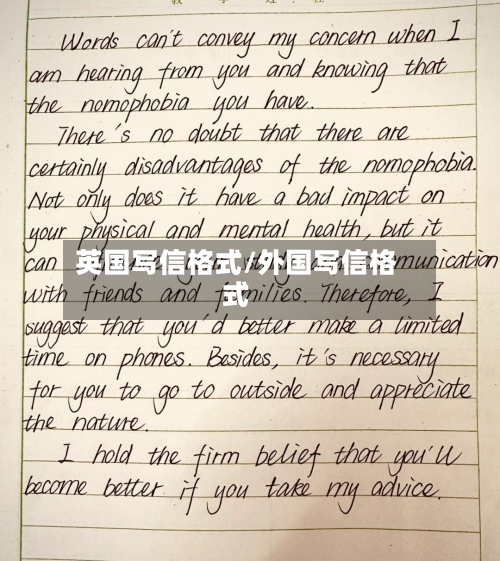 教 学 过 程
Words can't convey my concern when I
am hearing from you and knowing that
the nomophobia you have.
There's no doubt that there are
certainly disadvantages of the nomophobia.
Not only does it have a bad impact on
your physical and mental health, but it
can communication
英国写信格式/外国写信格
式
with friends and families. Therefore, I
suggest that you'd better make a limited
time on phones. Besides, it's necessary
for you to go to outside and appreciate
the nature.
I hold the firm belief that you'll
become better if you take my advice.